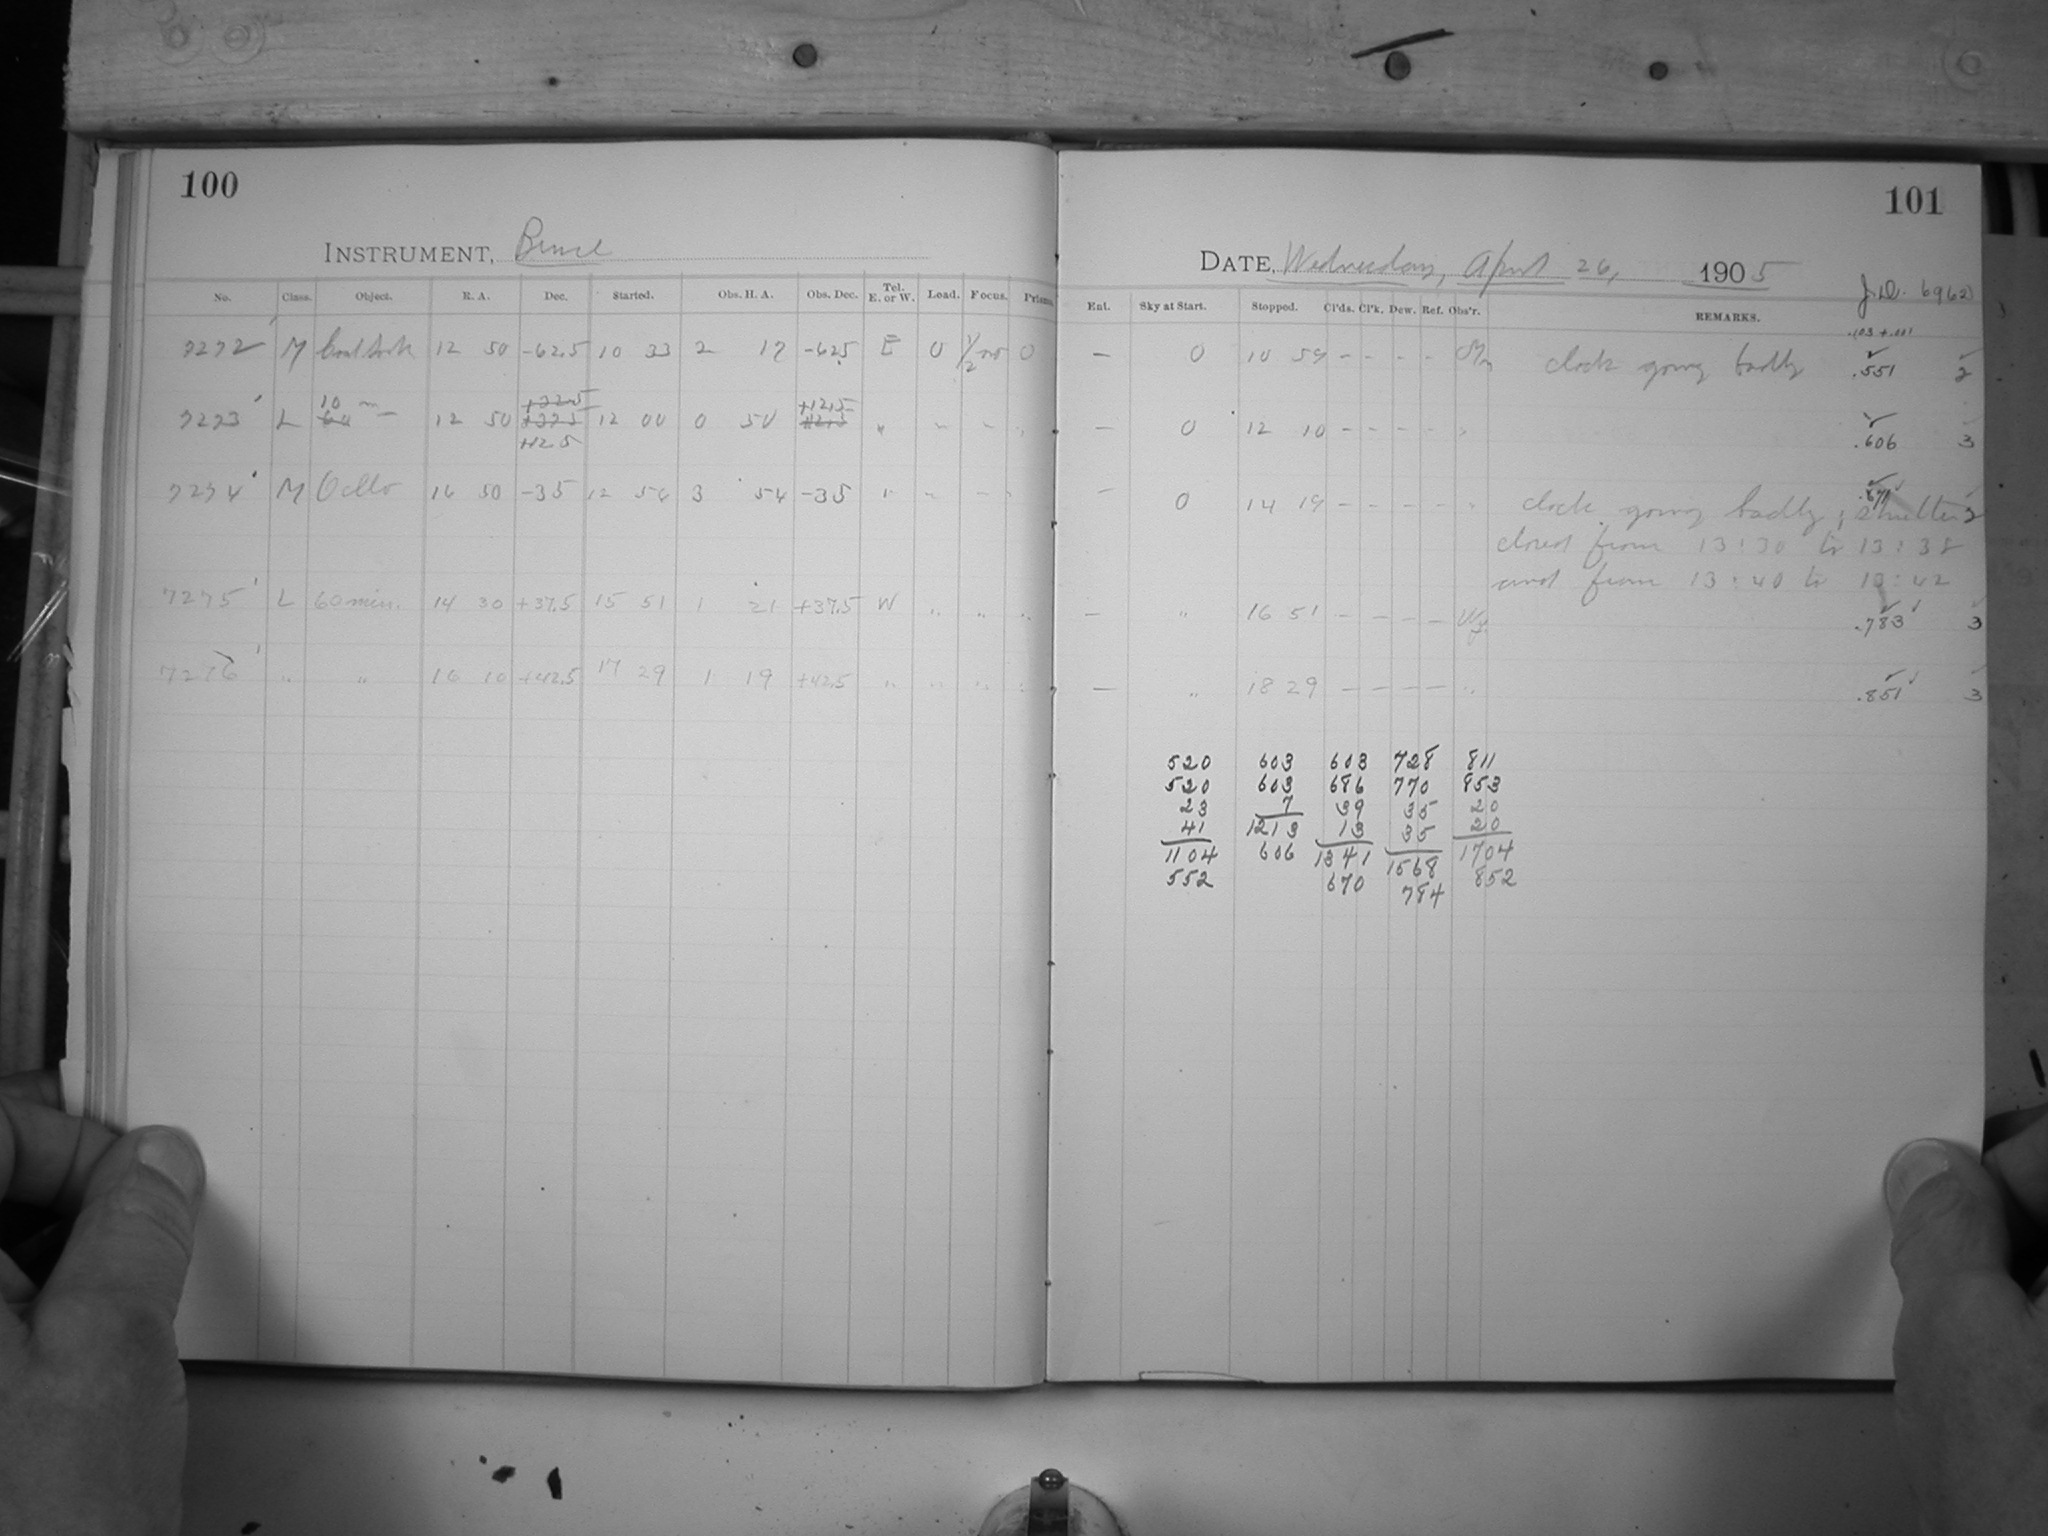 100
INSTRUMENT, Bruce
No. Class. Object. R. A. Dec. Started. Obs. H. A. Obs. Dec. Tel. E. or W. Load. Focus. Prisms
7272 M Coal sack 12 50 -62.5 10 33 2 17 -62.5 E 0 0
7273 L 10 m 12 50 +12.5 12 00 0 50 +12.5 " " " "
7274 M 16 50 -35 12 54 3 54 -35 " " " "
7275 L 60 min. 14 30 +37.5 15 51 1 21 +37.5 W " " "
7276 " " 16 10 +42.5 17 29 1 19 +42.5 " " " "
101
DATE, Wednesday, April 26, 1905
J.D. 6962
Ent. Sky at Start. Stopped. Cl'ds. Cl'k. Dew. Ref. Obs'r. REMARKS.
.103 + .001
— 0 10 59 - - - - clock going badly .551 2
— 0 12 10 - - - - " .606 3
— 0 14 19 - - - - " clock going badly; shutter 2
closed from 13:30 to 13:38
and from 13:40 to 13:42
— " 16 51 — — — — .783 3
— " 18 29 — — — — " .851 3
520 603 603 728 811
520 603 686 770 853
23 7 39 35 20
41 1213 13 35 20
1104 606 1341 1568 1704
552 670 784 852